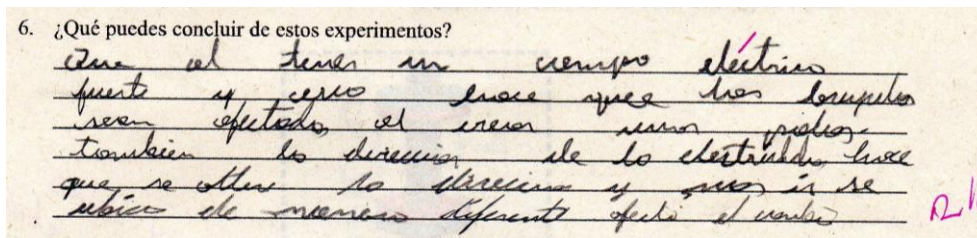 6. ¿Qué puedes concluir de estos experimentos?
Que al tener un campo eléctrico
fuerte y cerca hace que las brujulas
sean afectadas al crear unos polos.
tambien la direccion de la electricidad hace
que se altere la direccion y se
ubica de manera diferente afecta el cambio